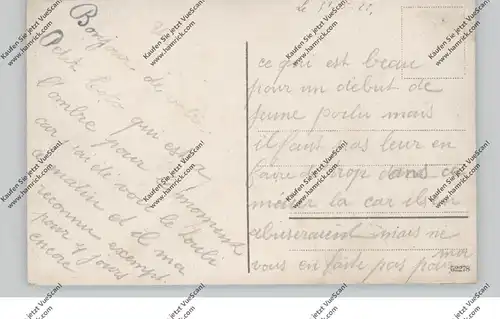 Bonjour de votre
Petit
qui est a
l'ombre pour le moment
car j'ai été voir le
ce matin et il m'a
reconnu exempt
pour 4 jours
encore
le
ce qui est beau
pour un début de
jeune poilu mais
il faut pas leur en
faire trop dans ce
métier la car ils en
abuseraient mais ne
vous en faite pas pour
moi
62278
Kaufen Sie jetzt VueScan!
www.hamrick.com